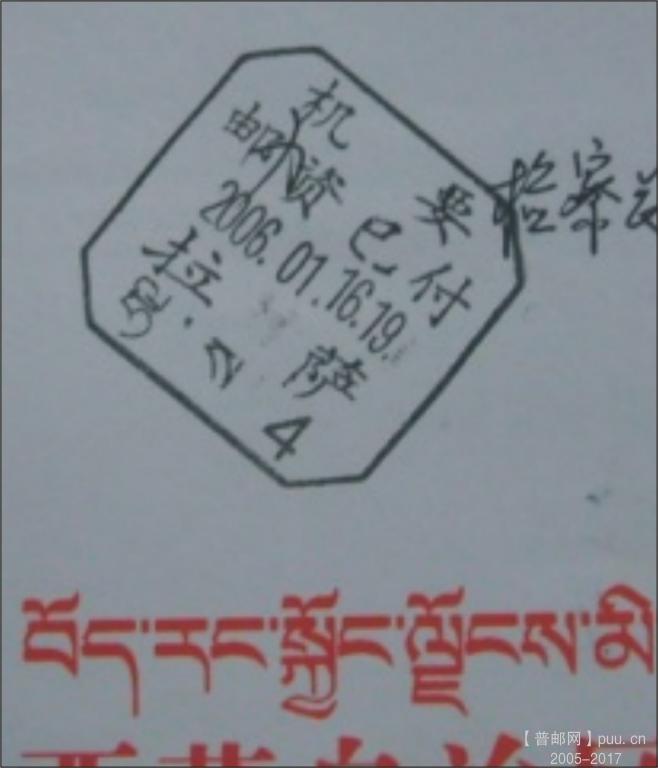 机要
邮资已付
2006.01.16.19.
拉萨
4
检察
བོད་རང་སྐྱོང་ལྗོངས་མི
西藏自治
【普邮网】puu.cn
2005-2017